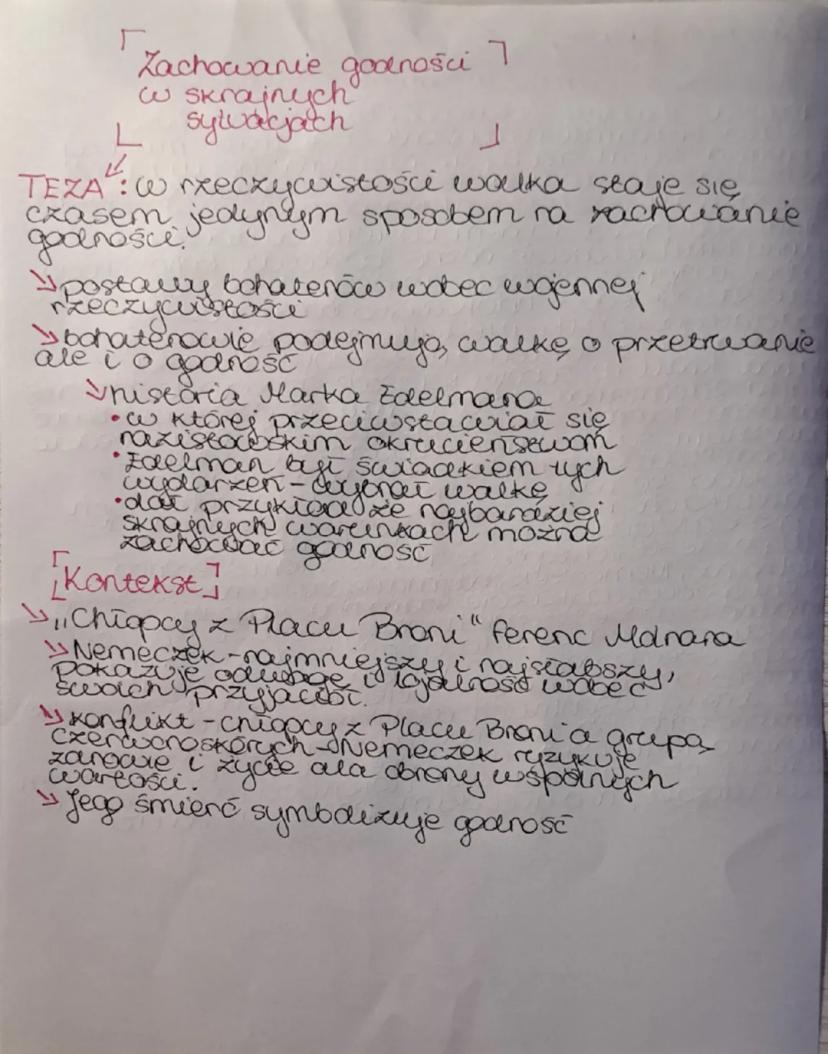 Zachowanie godności
w skrajnych
sytuacjach
TEZA: w rzeczywistości walka staje się
czasem jedynym sposobem na zachowanie
godności.
postawy bohaterów wobec wojennej
rzeczywistości
bohaterowie podejmują walkę o przetrwanie
ale i o godność
historia Marka Edelmana
• w której przeciwstawiał się
nazistowskim okrucieństwom
• Edelman był świadkiem tych
wydarzeń - wybrał walkę
• dał przykład że najbardziej
skrajnych warunkach można
zachować godność
[Kontekst]
„Chłopcy z Placu Broni" Ferenc Molnara
Nemeczek - najmniejszy i najsłabszy,
pokazuje odwagę i lojalność wobec
swoich przyjaciół.
konflikt - chłopcy z Placu Broni a grupą
czerwonoskórych - Nemeczek ryzykuje
zdrowie i życie dla obrony wspólnych
wartości.
Jego śmierć symbolizuje godność